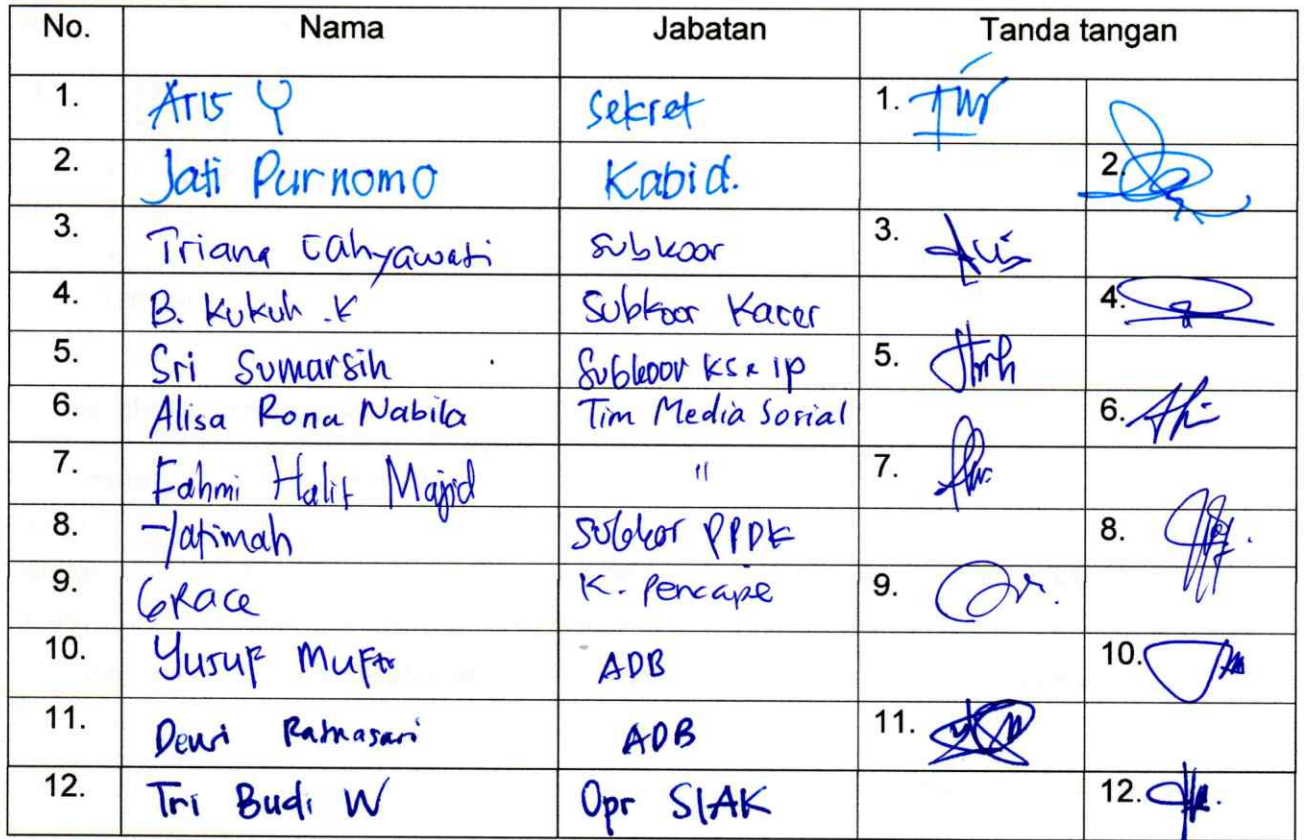 No. Nama Jabatan Tanda tangan
1. Aris Y Sekret 1.
2. Jati Purnomo Kabid. 2.
3. Triana Cahyawati Subkoor 3.
4. B. Kukuh .K Subkoor Kacer 4.
5. Sri Sumarsih Subkoor KS & IP 5.
6. Alisa Rona Nabila Tim Media Sosial 6.
7. Fahmi Halif Majid " 7.
8. Fatimah Subkor PPDK 8.
9. Grace K. Pencapil 9.
10. Yusuf ADB 10.
11. Dewi Ratnasari ADB 11.
12. Tri Budi W Opr SIAK 12.